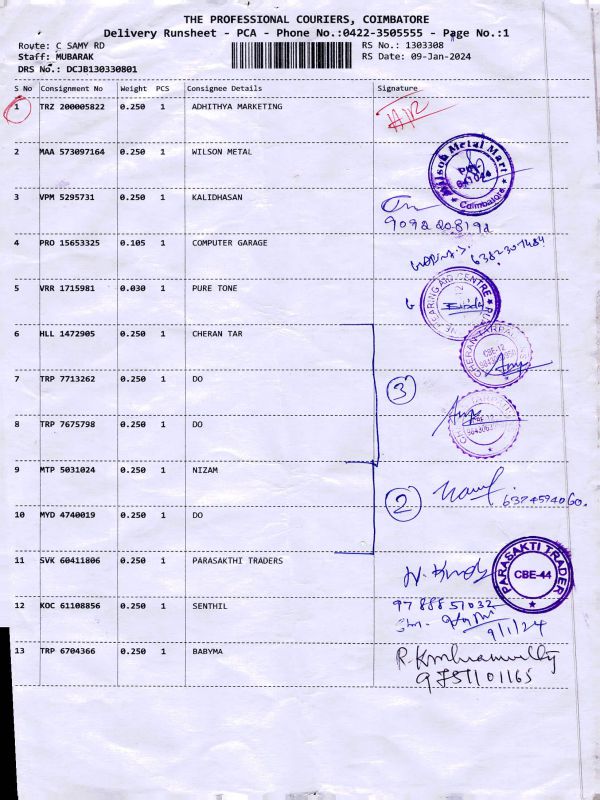 THE PROFESSIONAL COURIERS, COIMBATORE
Delivery Runsheet - PCA - Phone No.:0422-3505555 - Page No.:1
Route: C SAMY RD
Staff: MUBARAK
DRS No.: DCJB130330801
RS No.: 1303308
RS Date: 09-Jan-2024
S No Consignment No Weight PCS Consignee Details Signature
1 TRZ 200005822 0.250 1 ADHITHYA MARKETING
2 MAA 573097164 0.250 1 WILSON METAL
Wilson Metal Mart
Coimbatore
3 VPM 5295731 0.250 1 KALIDHASAN
9092208192
4 PRO 15653325 0.105 1 COMPUTER GARAGE
5 VRR 1715981 0.030 1 PURE TONE
HEARING AID CENTRE
6 HLL 1472905 0.250 1 CHERAN TAR
CBE-12
7 TRP 7713262 0.250 1 DO
3
8 TRP 7675798 0.250 1 DO
9 MTP 5031024 0.250 1 NIZAM
2
6374594060.
10 MYD 4740019 0.250 1 DO
11 SVK 60411806 0.250 1 PARASAKTHI TRADERS
PARASAKTI TRADER
CBE-44
12 KOC 61108856 0.250 1 SENTHIL
9788851032
9/1/24
13 TRP 6704366 0.250 1 BABYMA
9751101165